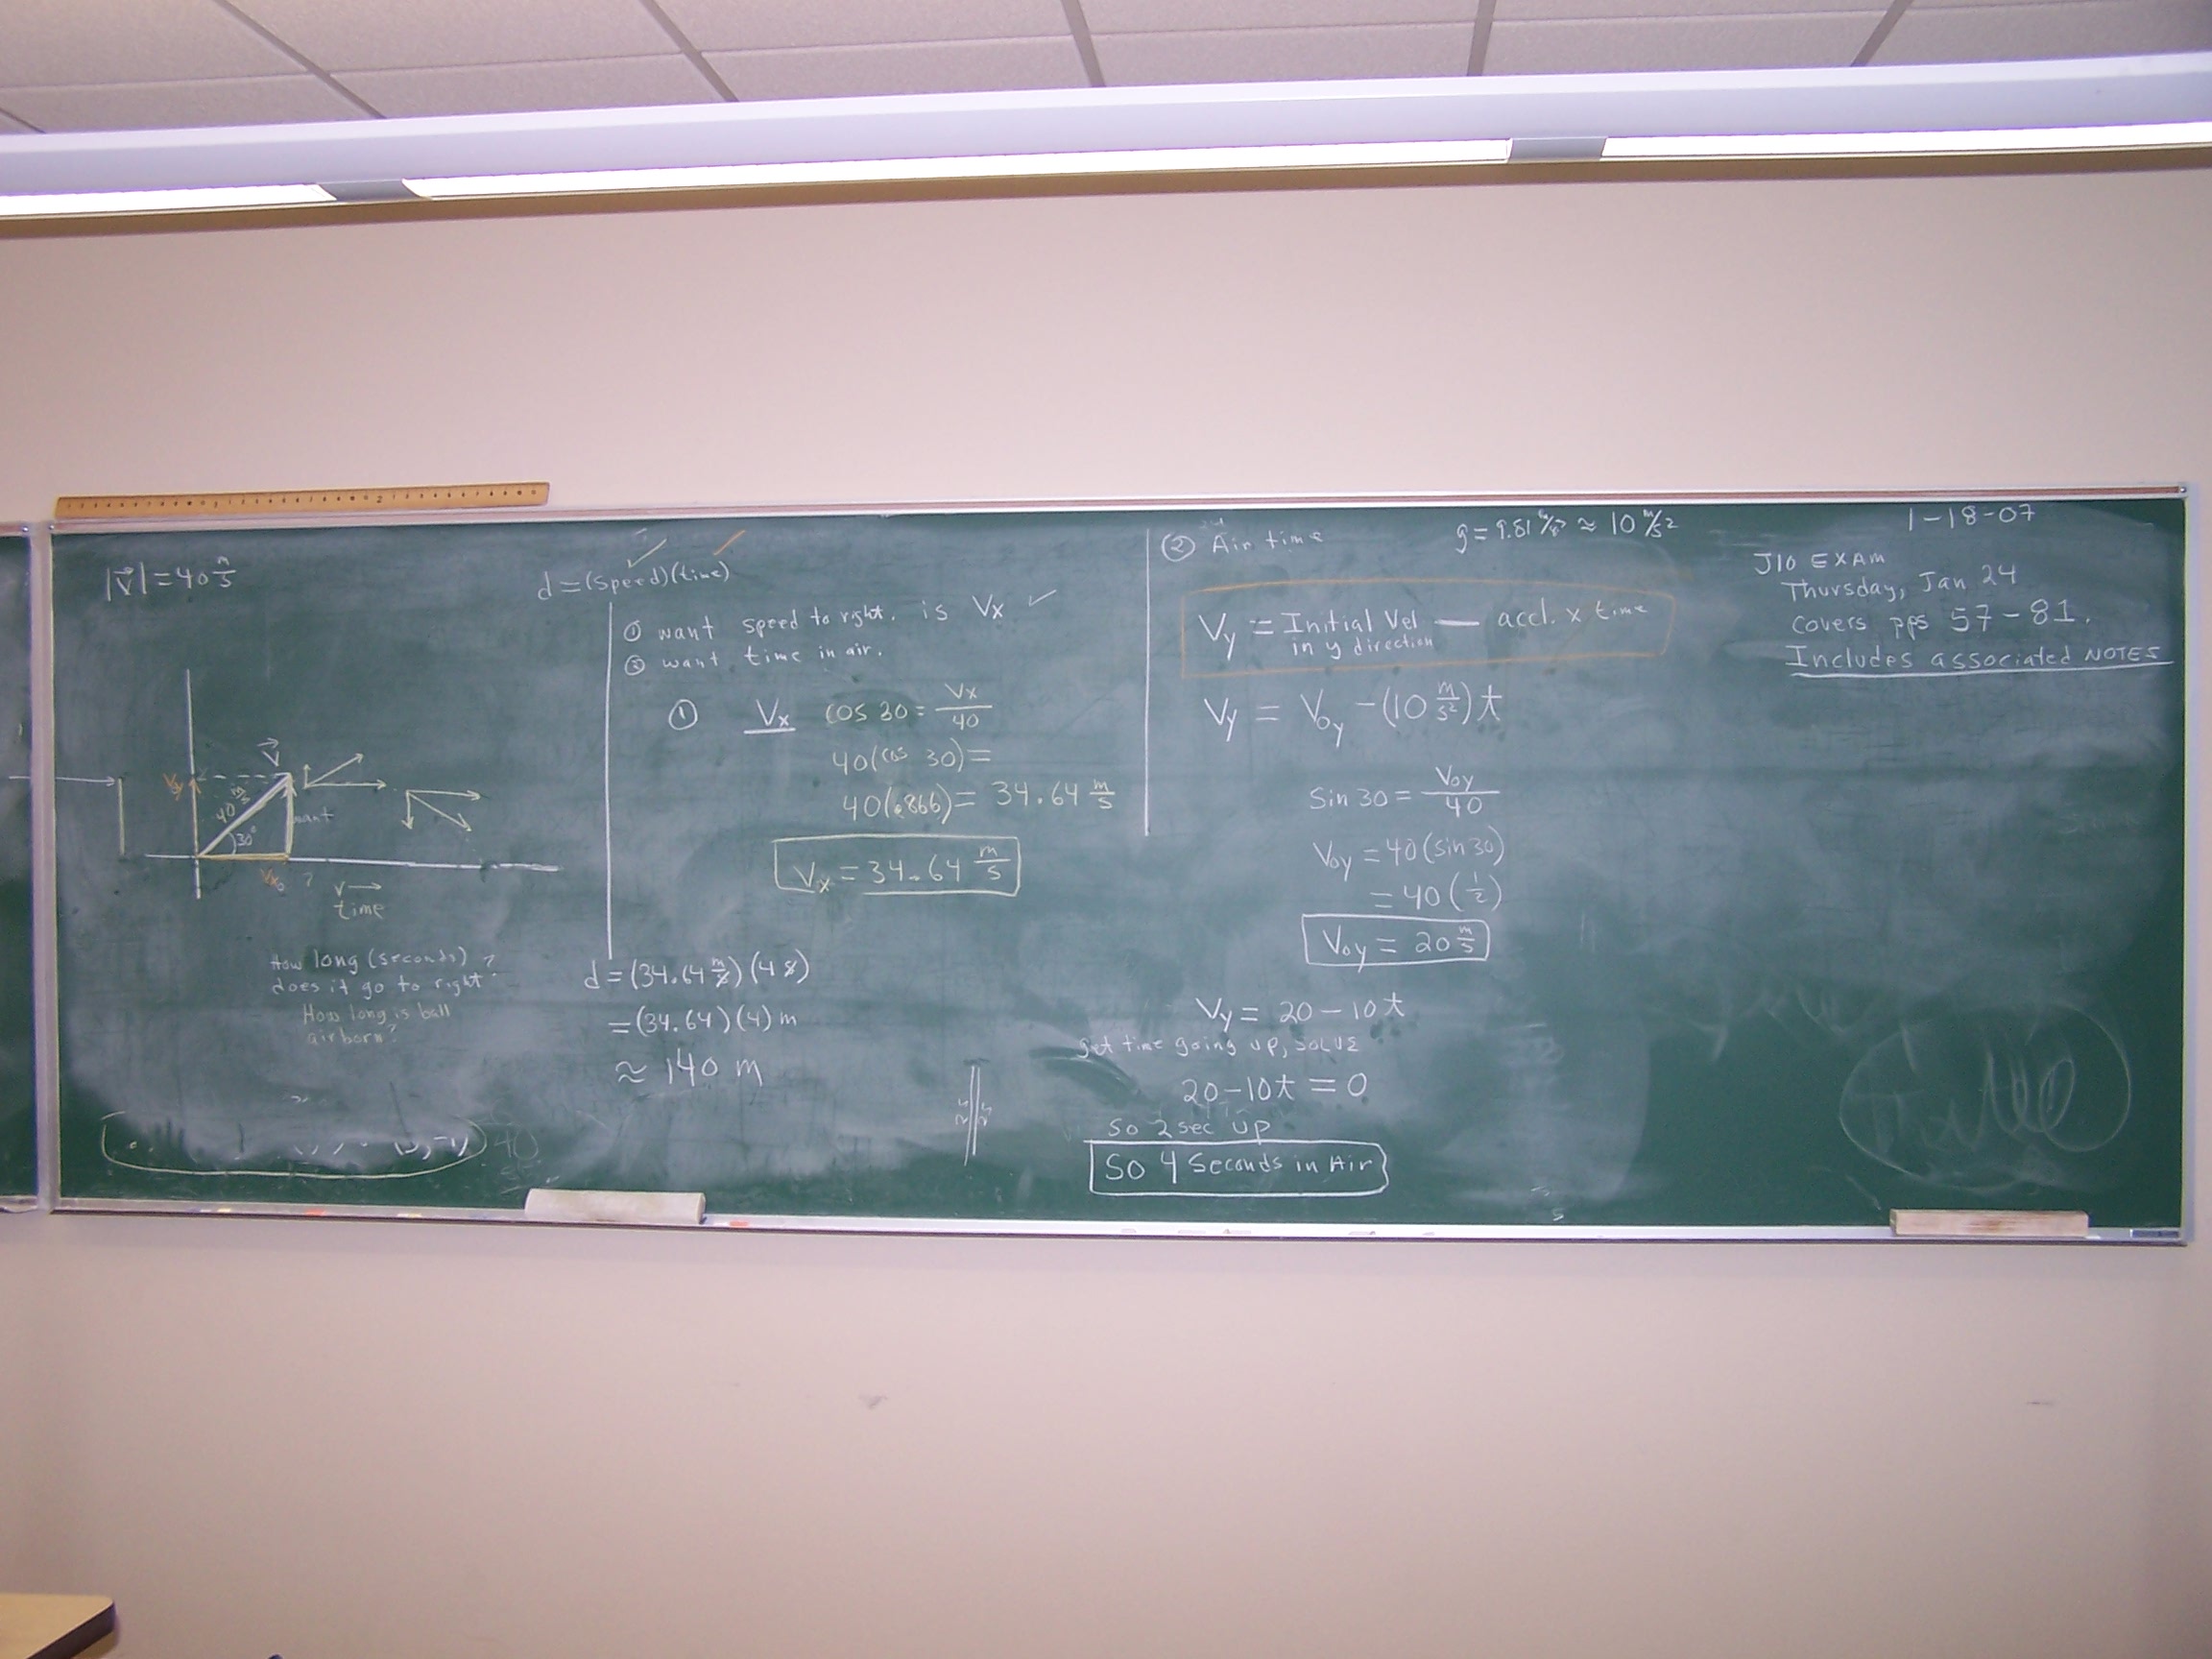 |V| = 40 m/s
V
Vy
40 m/s
30°
want
Vx
?
v
time
How long (seconds)
does it go to right ?
How long is ball
airborn?
d = (speed)(time)
① want speed to right. is Vx
② want time in air.
① Vx cos 30 = Vx/40
40(cos 30) =
40(.866) = 34.64 m/s
Vx = 34.64 m/s
d = (34.64 m/s)(4 s)
= (34.64)(4) m
≈ 140 m
② Air time
g = 9.81 m/s² ≈ 10 m/s²
Vy = Initial Vel — accl. x time
in y direction
Vy = Voy - (10 m/s²) t
Sin 30 = Voy/40
Voy = 40 (sin 30)
= 40 (1/2)
Voy = 20 m/s
Vy = 20 - 10t
get time going up, SOLVE
20 - 10t = 0
So 2 sec up
So 4 Seconds in Air
1-18-07
J10 EXAM
Thursday, Jan 24
covers pps 57-81.
Includes associated NOTES